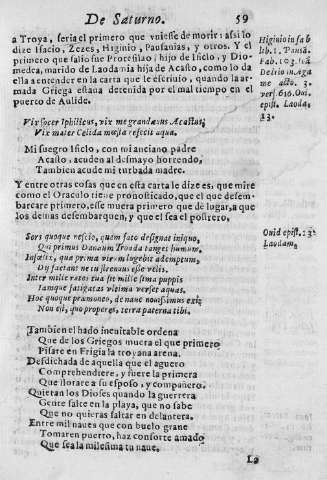 De Saturno. 59
a Troya, seria el primer que vuiesse de morir: assi lo
dize Isacio, Zezes, Higinio, Pausanias, y otros. Y el
primero que salio fue Protesilao, hijo de Isiclo, y Dio-
medea, marido de Laodamia hija de Acasto, como lo da
ella a entender en la carta que le escriuio, quando la ar-
mada Griega estaua detenida por el mal tiempo en el
puerto de Aulide.
Higinio in fab
lib. 1. Pausa.
Fab. 103.
in Aga
me acto. 3.
vers. 616. Oui.
epist. Laoda,
13.
Vix socer Iphiclus, vix me grandæuus Acastus,
Vix mater gelida mœsta refecit aqua.
Mi suegro Isiclo, con mi anciano padre
Acasto, acuden al desmayo horrendo,
Tambien acude mi turbada madre.
Y entre otras cosas que en esta carta le dize es, que mire
como el Oraculo tiene pronosticado, que el que desem-
barcare primero, esse muera primero que de lugar, a que
los demas desembarquen, y que el sea el postrero,
Ouid epist. 13.
Laodam,
Sors quoque nescio, quam fato designat iniquo,
Qui primus Danaum Troada tangat humum,
Infœlix, quæ prima virum lugebit ademptum,
Dij faciant ne tu strenuus esse velis.
Inter mille rates tua sit millesima puppis
Iamque fatigatas vltima verset aquas.
Hoc quoque præmoneo, de naue nouissimus exi;
Non est, quo properes, terra paterna tibi.
Tambien el hado ineuitable ordena
Que de los Griegos muera el que primero
Pisare en Frigia la troyana arena.
Desdichada de aquella que el aguero
Comprehendiere, y fuere la primera
Que llorare a su esposo, y compañero.
Quieran los Dioses quando la guerrera
Gente salte en la playa, que no sabe
Que no quieras saltar en delantera.
Entre mil naues que con buelo graue
Tomaren puerto, haz consorte amado
Que sea la milesima tu naue,
La